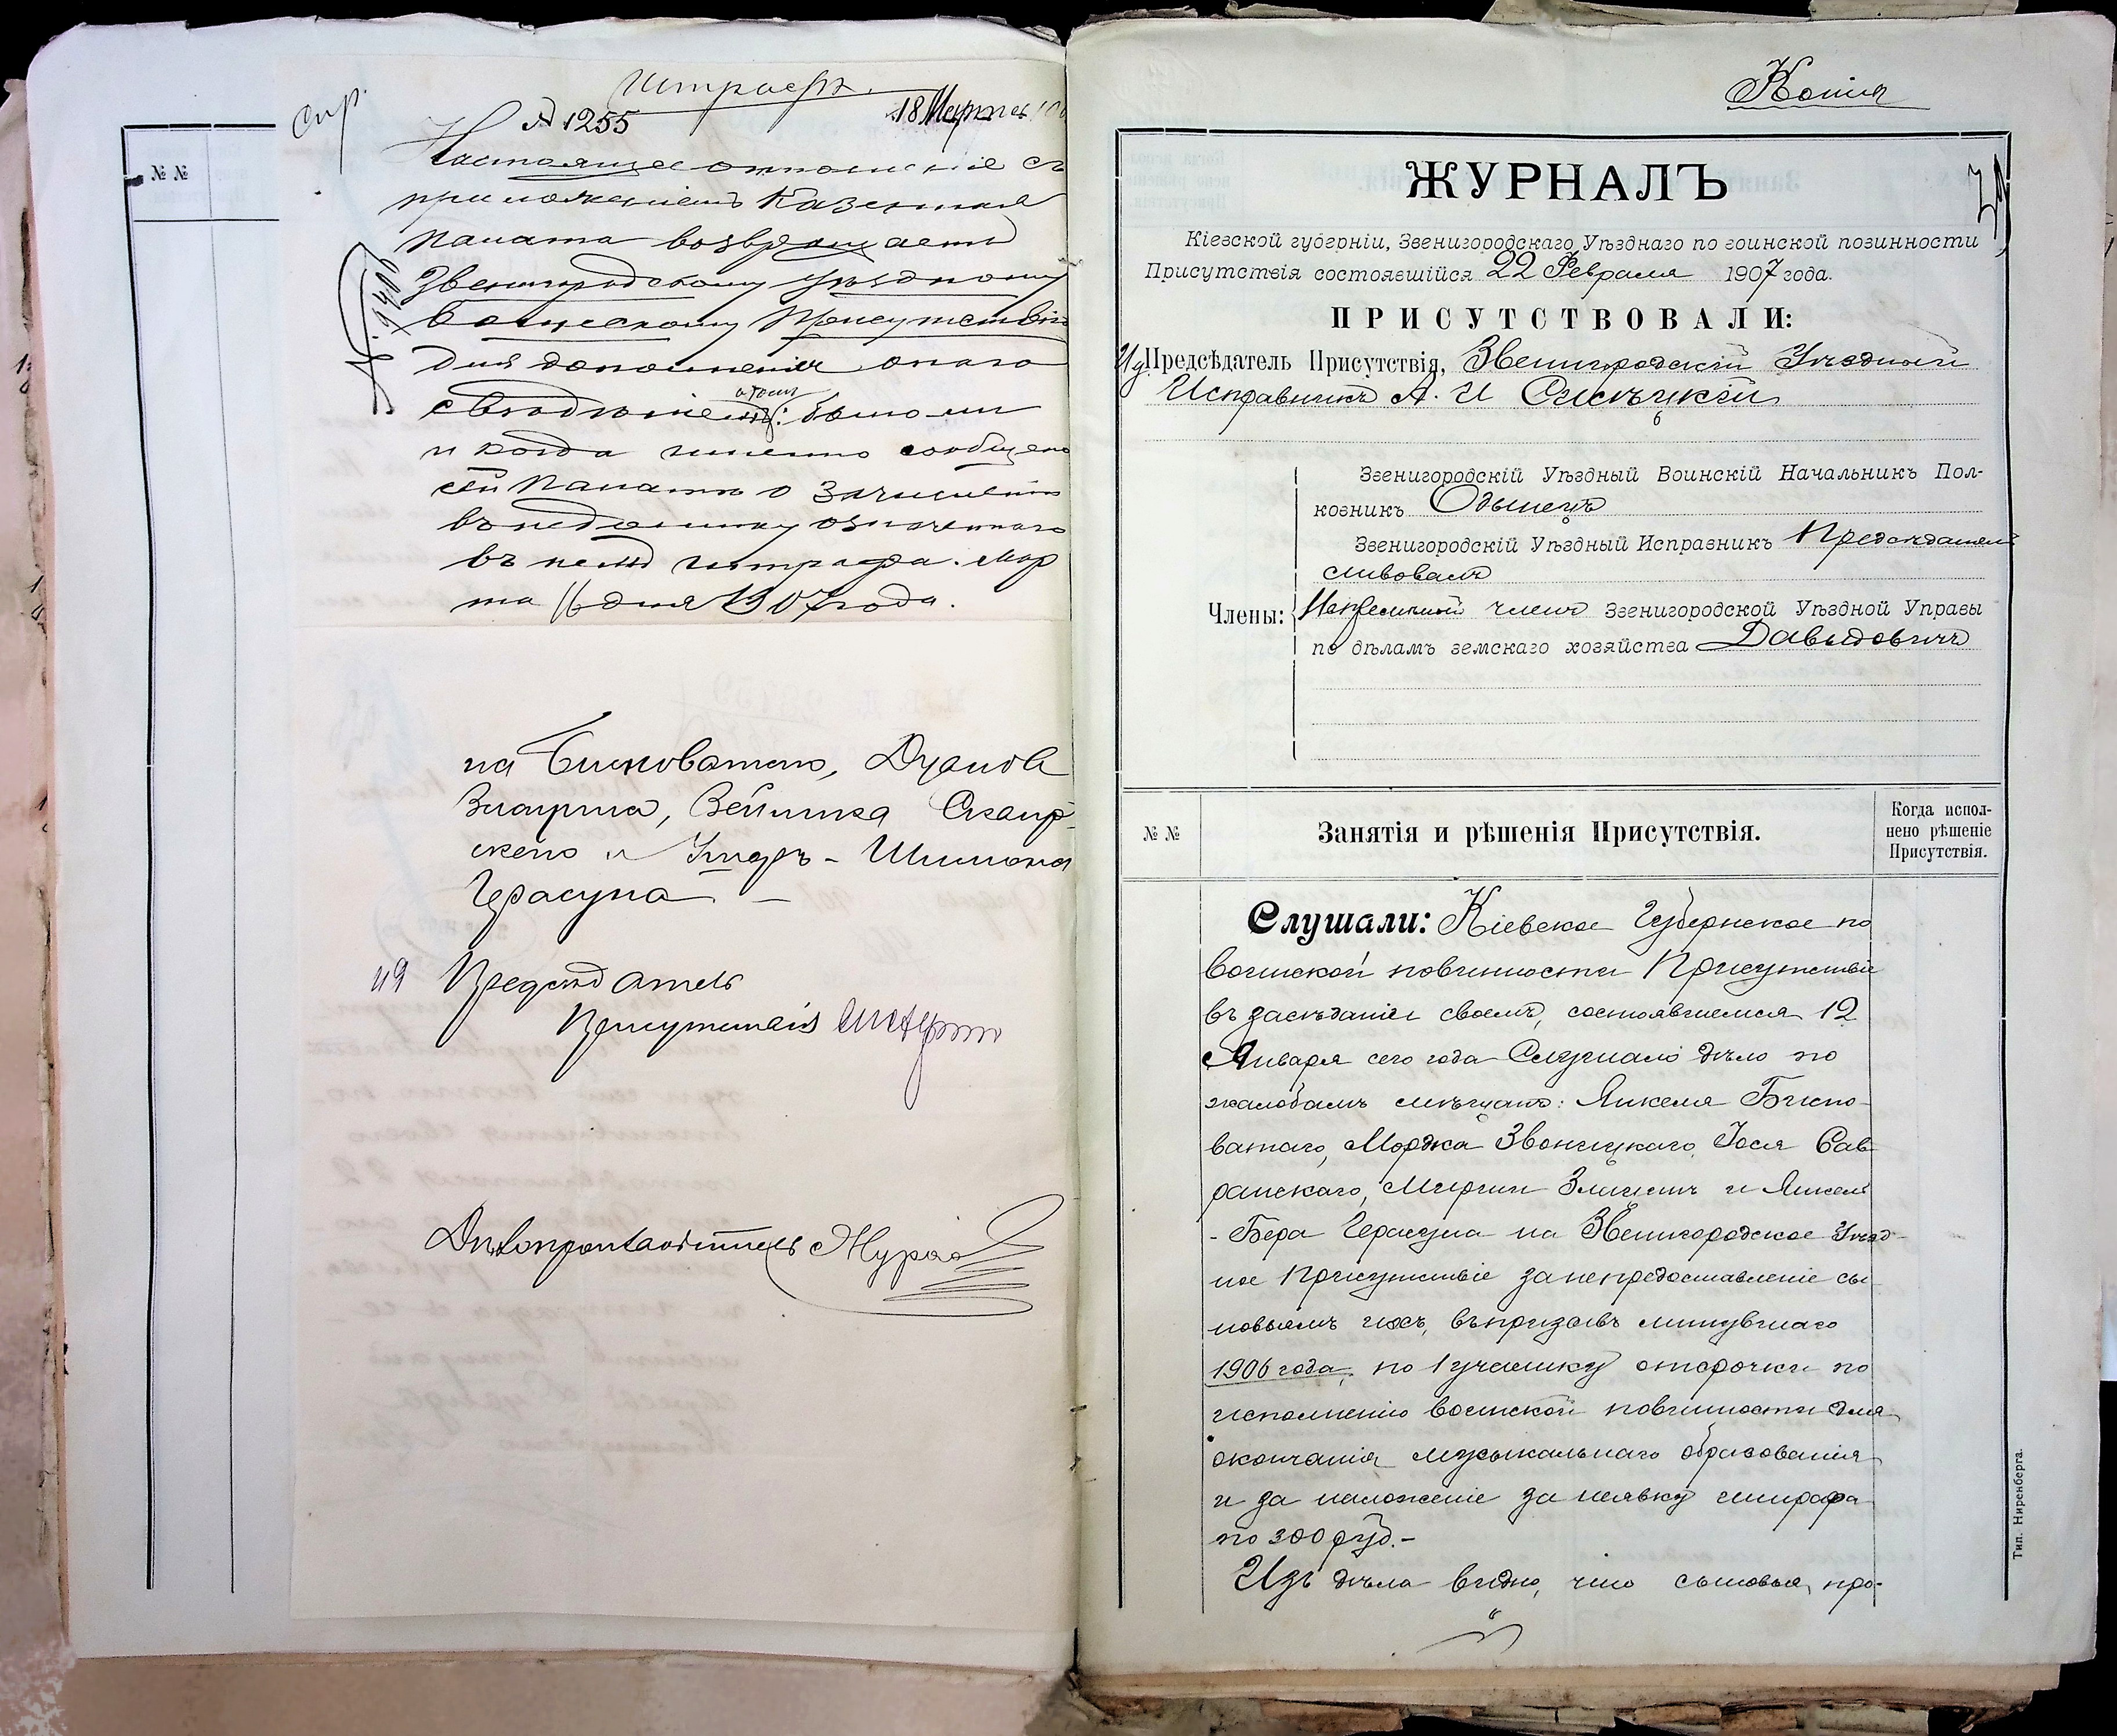 № №
Штрафъ.
№ 1255
18 Марта
Настоящее отношеніе съ
приложеніемъ Казенная
Палата возвращаетъ
Звенигородскому Уѣздному
Воинскому Присутствію
для дополненія онаго
о томъ
свѣдѣніемъ: было ли
и когда именно сообщено
сей Палатѣ о зачисленіи
въ недоимку означеннаго
въ немъ штрафа. Мар
та 16 дня 1907 года.
на Билиоватаго,
Златуша, Вейлика Сквир-
скаго и Хиидеръ-Шимона
Герасуна. —
Предсѣдатель
Присутствія
Дѣлопроизводитель
Копія
ЖУРНАЛЪ
Кіевской губерніи, Звенигородскаго Уѣзднаго по воинской повинности
Присутствія состоявшійся 22 Февраля 1907 года.
ПРИСУТСТВОВАЛИ:
И д Предсѣдатель Присутствія, Звенигородскій Уѣздный
Исправникъ А. И
Звенигородскій Уѣздный Воинскій Начальникъ Пол-
ковникъ Одынецъ
Звенигородскій Уѣздный Исправникъ Предсѣдатель
ствовалъ
Члены: Непремѣнный членъ Звенигородской Уѣздной Управы
по дѣламъ земскаго хозяйства Давыдовичъ
№ №
Занятія и рѣшенія Присутствія.
Когда испол-
нено рѣшеніе
Присутствія.
Слушали: Кіевское Губернское по
воинской повинности Присутствіе
въ засѣданіи своемъ, состоявшемся 12
Января сего года Слушало дѣло по
жалобамъ мѣщанъ: Янкеля Бѣлио-
ватаго, Мордка Звоницкаго, Іося Сав-
ранскаго, Миріи и Янкеля
-Бера Герасуна на Звенигородское Уѣзд-
ное Присутствіе за непредоставленіе сы-
новьямъ ихъ, въ призывъ минувшаго
1906 года, по 1 участку отсрочки по
исполненію воинской повинности для
окончанія музыкальнаго образованія
и за наложеніе за неявку штрафа
по 300 руб.-
Изъ дѣла видно, что сыновья про-
Тип. Ниренберга.